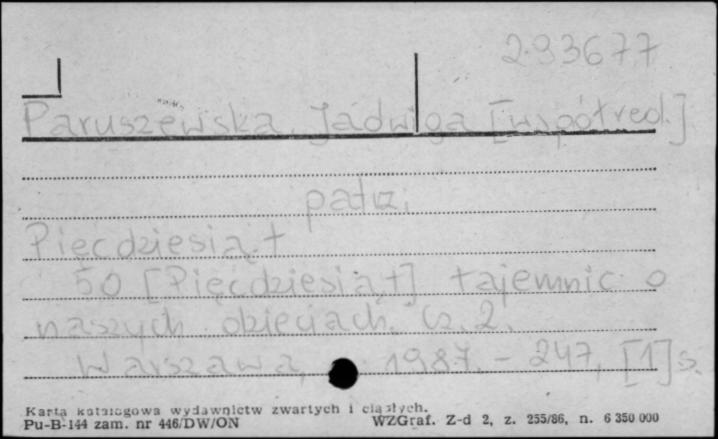 2.93677
Paruszewska Jadwiga [współred.]
patrz.
Pięćdziesiąt
50 [Pięćdziesiąt] tajemnic o
naszych dzieciach. Cz. 2.
Warszawa, 1987. - 247, [1] s.
Karta katalogowa wydawnictw zwartych i ciągłych.
Pu-B-144 zam. nr 446/DW/ON WZGraf. Z-d 2, z. 255/86, n. 6 350 000